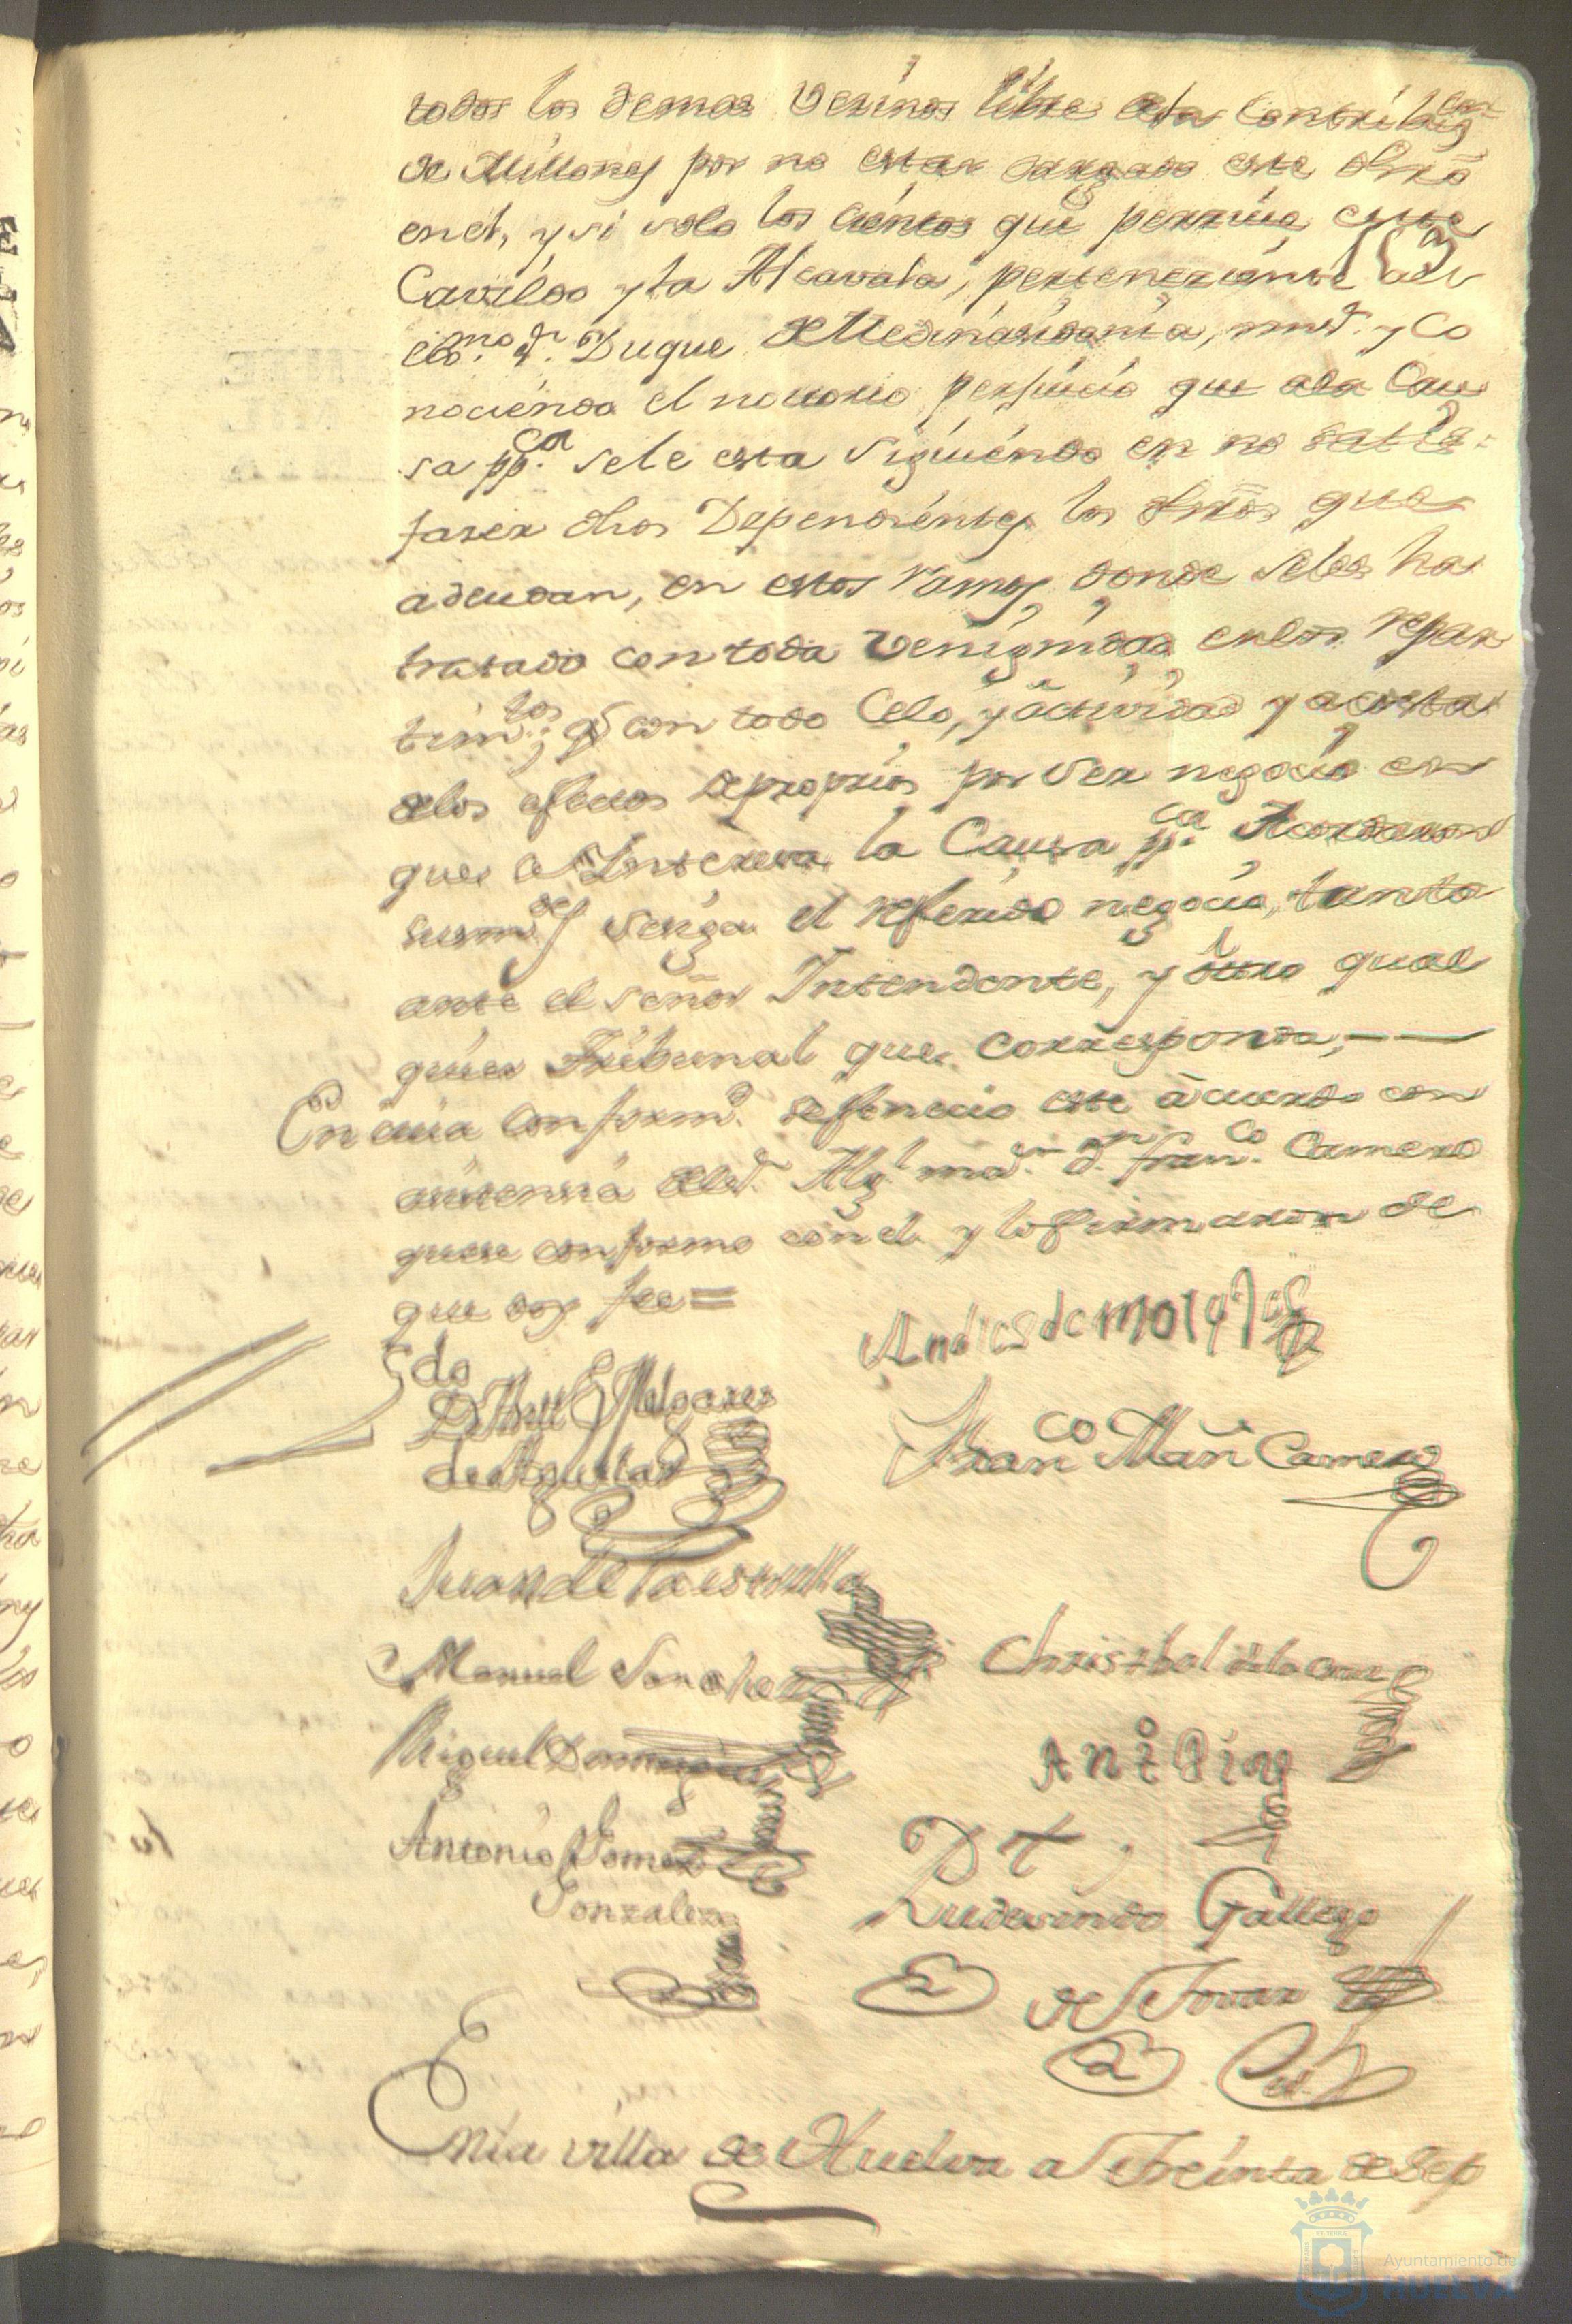 todos los demas vexinos libre esta contribug.on
de Millones por no estar cargado este dr̃o
en el, y si solo los cientos que perzive este
Cavildo y la Alcavala, perteneziente al
exmo. Sr. Duque de Medinasidonia, med. y co
nociendo el notorio perjuicio que ala Cau
sa pp.ca se le esta siguiendo en no satis-
fazer dhos Dependientes los dr̃os que
adeudan, en estos ramos donde seles ha
tratado con toda venignidad enlos repar
tim.tos; q̃ con todo Celo, y actividad y a costa
delos efectos de proprios por ser negocio en
que se Interesa la Causa pp.ca Acordaron
susm.des sesiga el referido negocio, tanto
ante el señor Intendente, y otro qual
quier Tribunal que corresponda,
En cuia conform.d se fenecio este acuerdo con
asistencia del Alg.l ma.r d.n Fran.co Camero
quese conformo con el y lo firmaron de
que doy fee=
Andres de
Fran.co Mañ Camero
de Aguilar
Juan de la estrella
Manuel Sanchez
Christobal dela Cruz
Miguel Dominguez
Ant.o Diaz
Antonio Gomez
Gonzalez
Rudesindo Gallego
de Tovar
Enla villa de Huelva a Treinta de Sep
Ayuntamiento de
HUELVA